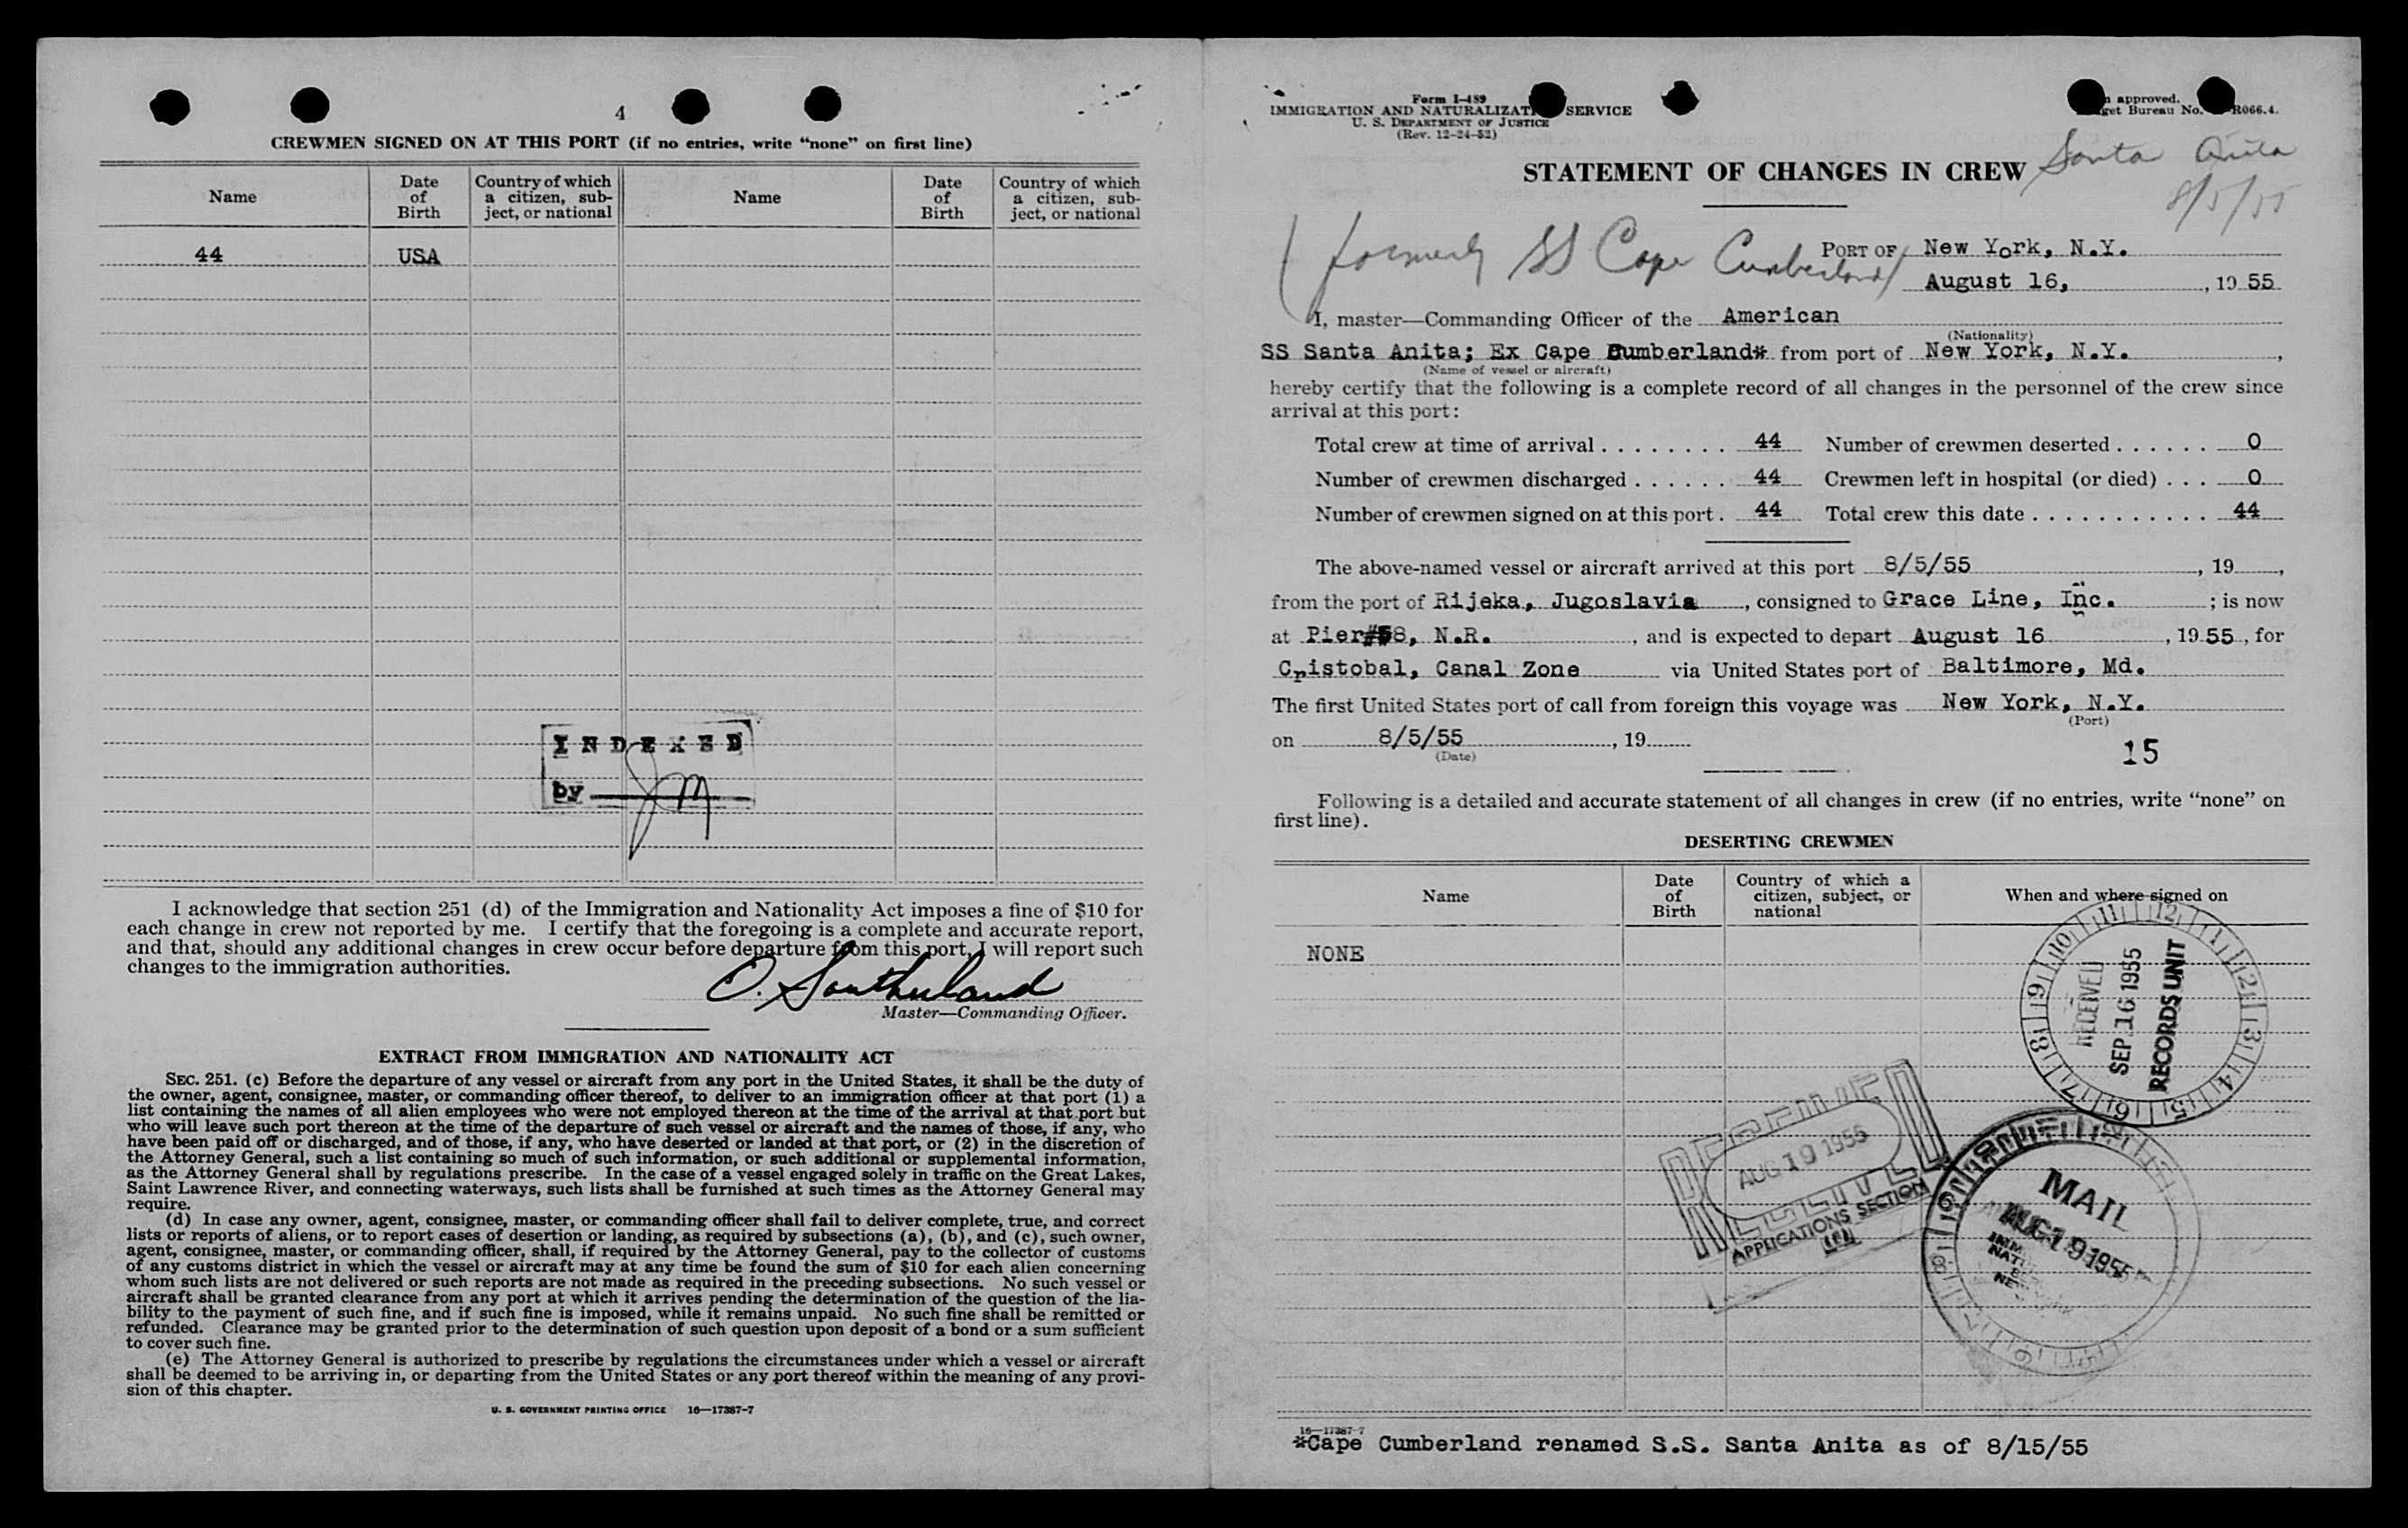 4
CREWMEN SIGNED ON AT THIS PORT (if no entries, write “none” on first line)
Name
Date of Birth
Country of which a citizen, subject, or national
Name
Date of Birth
Country of which a citizen, subject, or national
44 USA
INDEXED
by JM
I acknowledge that section 251 (d) of the Immigration and Nationality Act imposes a fine of $10 for
each change in crew not reported by me. I certify that the foregoing is a complete and accurate report,
and that, should any additional changes in crew occur before departure from this port, I will report such
changes to the immigration authorities.
O. Southerland
Master—Commanding Officer.
EXTRACT FROM IMMIGRATION AND NATIONALITY ACT
SEC. 251. (c) Before the departure of any vessel or aircraft from any port in the United States, it shall be the duty of
the owner, agent, consignee, master, or commanding officer thereof, to deliver to an immigration officer at that port (1) a
list containing the names of all alien employees who were not employed thereon at the time of the arrival at that port but
who will leave such port thereon at the time of the departure of such vessel or aircraft and the names of those, if any, who
have been paid off or discharged, and of those, if any, who have deserted or landed at that port, or (2) in the discretion of
the Attorney General, such a list containing so much of such information, or such additional or supplemental information,
as the Attorney General shall by regulations prescribe. In the case of a vessel engaged solely in traffic on the Great Lakes,
Saint Lawrence River, and connecting waterways, such lists shall be furnished at such times as the Attorney General may
require.
(d) In case any owner, agent, consignee, master, or commanding officer shall fail to deliver complete, true, and correct
lists or reports of aliens, or to report cases of desertion or landing, as required by subsections (a), (b), and (c), such owner,
agent, consignee, master, or commanding officer, shall, if required by the Attorney General, pay to the collector of customs
of any customs district in which the vessel or aircraft may at any time be found the sum of $10 for each alien concerning
whom such lists are not delivered or such reports are not made as required in the preceding subsections. No such vessel or
aircraft shall be granted clearance from any port at which it arrives pending the determination of the question of the lia-
bility to the payment of such fine, and if such fine is imposed, while it remains unpaid. No such fine shall be remitted or
refunded. Clearance may be granted prior to the determination of such question upon deposit of a bond or a sum sufficient
to cover such fine.
(e) The Attorney General is authorized to prescribe by regulations the circumstances under which a vessel or aircraft
shall be deemed to be arriving in, or departing from the United States or any port thereof within the meaning of any provi-
sion of this chapter.
U. S. GOVERNMENT PRINTING OFFICE 16—17387-7
Form I-489
IMMIGRATION AND NATURALIZATI SERVICE
U. S. DEPARTMENT OF JUSTICE
(Rev. 12-24-52)
approved.
get Bureau No. R066.4.
STATEMENT OF CHANGES IN CREW
Santa Anita
8/5/55
(formerly SS Cape Cumberland)
PORT OF New York, N.Y.
August 16, , 19 55
I, master—Commanding Officer of the American
(Nationality)
SS Santa Anita; Ex Cape Cumberland* from port of New York, N.Y. ,
(Name of vessel or aircraft)
hereby certify that the following is a complete record of all changes in the personnel of the crew since
arrival at this port:
Total crew at time of arrival 44 Number of crewmen deserted 0
Number of crewmen discharged 44 Crewmen left in hospital (or died) 0
Number of crewmen signed on at this port 44 Total crew this date 44
The above-named vessel or aircraft arrived at this port 8/5/55 , 19 ,
from the port of Rijeka, Jugoslavia , consigned to Grace Line, Inc. ; is now
at Pier#58, N.R. , and is expected to depart August 16 , 19 55 , for
Cristobal, Canal Zone via United States port of Baltimore, Md.
The first United States port of call from foreign this voyage was New York, N.Y.
(Port)
on 8/5/55 , 19
(Date)
15
Following is a detailed and accurate statement of all changes in crew (if no entries, write “none” on
first line).
DESERTING CREWMEN
Name
Date of Birth
Country of which a citizen, subject, or national
When and where signed on
NONE
RECEIVED
SEP 16 1955
RECORDS UNIT
AUG 19 1955
RECEIVED
APPLICATIONS SECTION
MAIL
AUG 19 1955
16—17387-7
*Cape Cumberland renamed S.S. Santa Anita as of 8/15/55